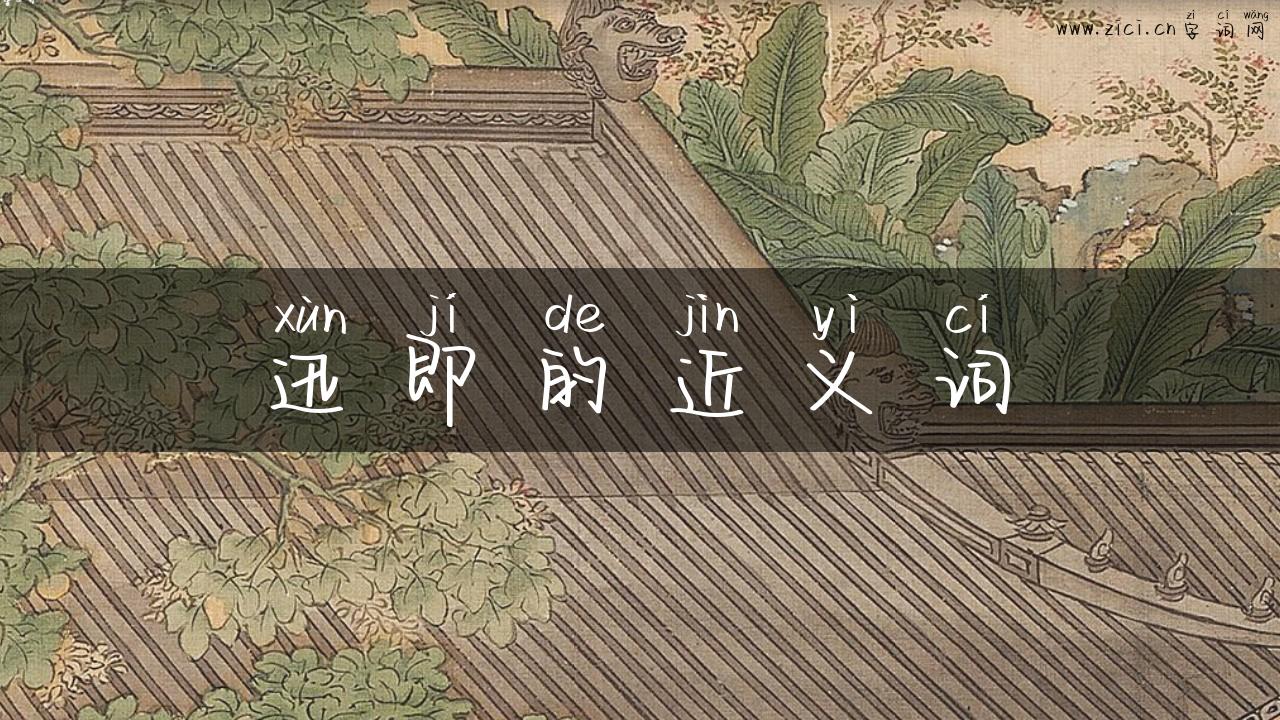 zì cí wǎng
www.zici.cn 字 词 网
xùn jí de jìn yì cí
迅 即 的 近 义 词